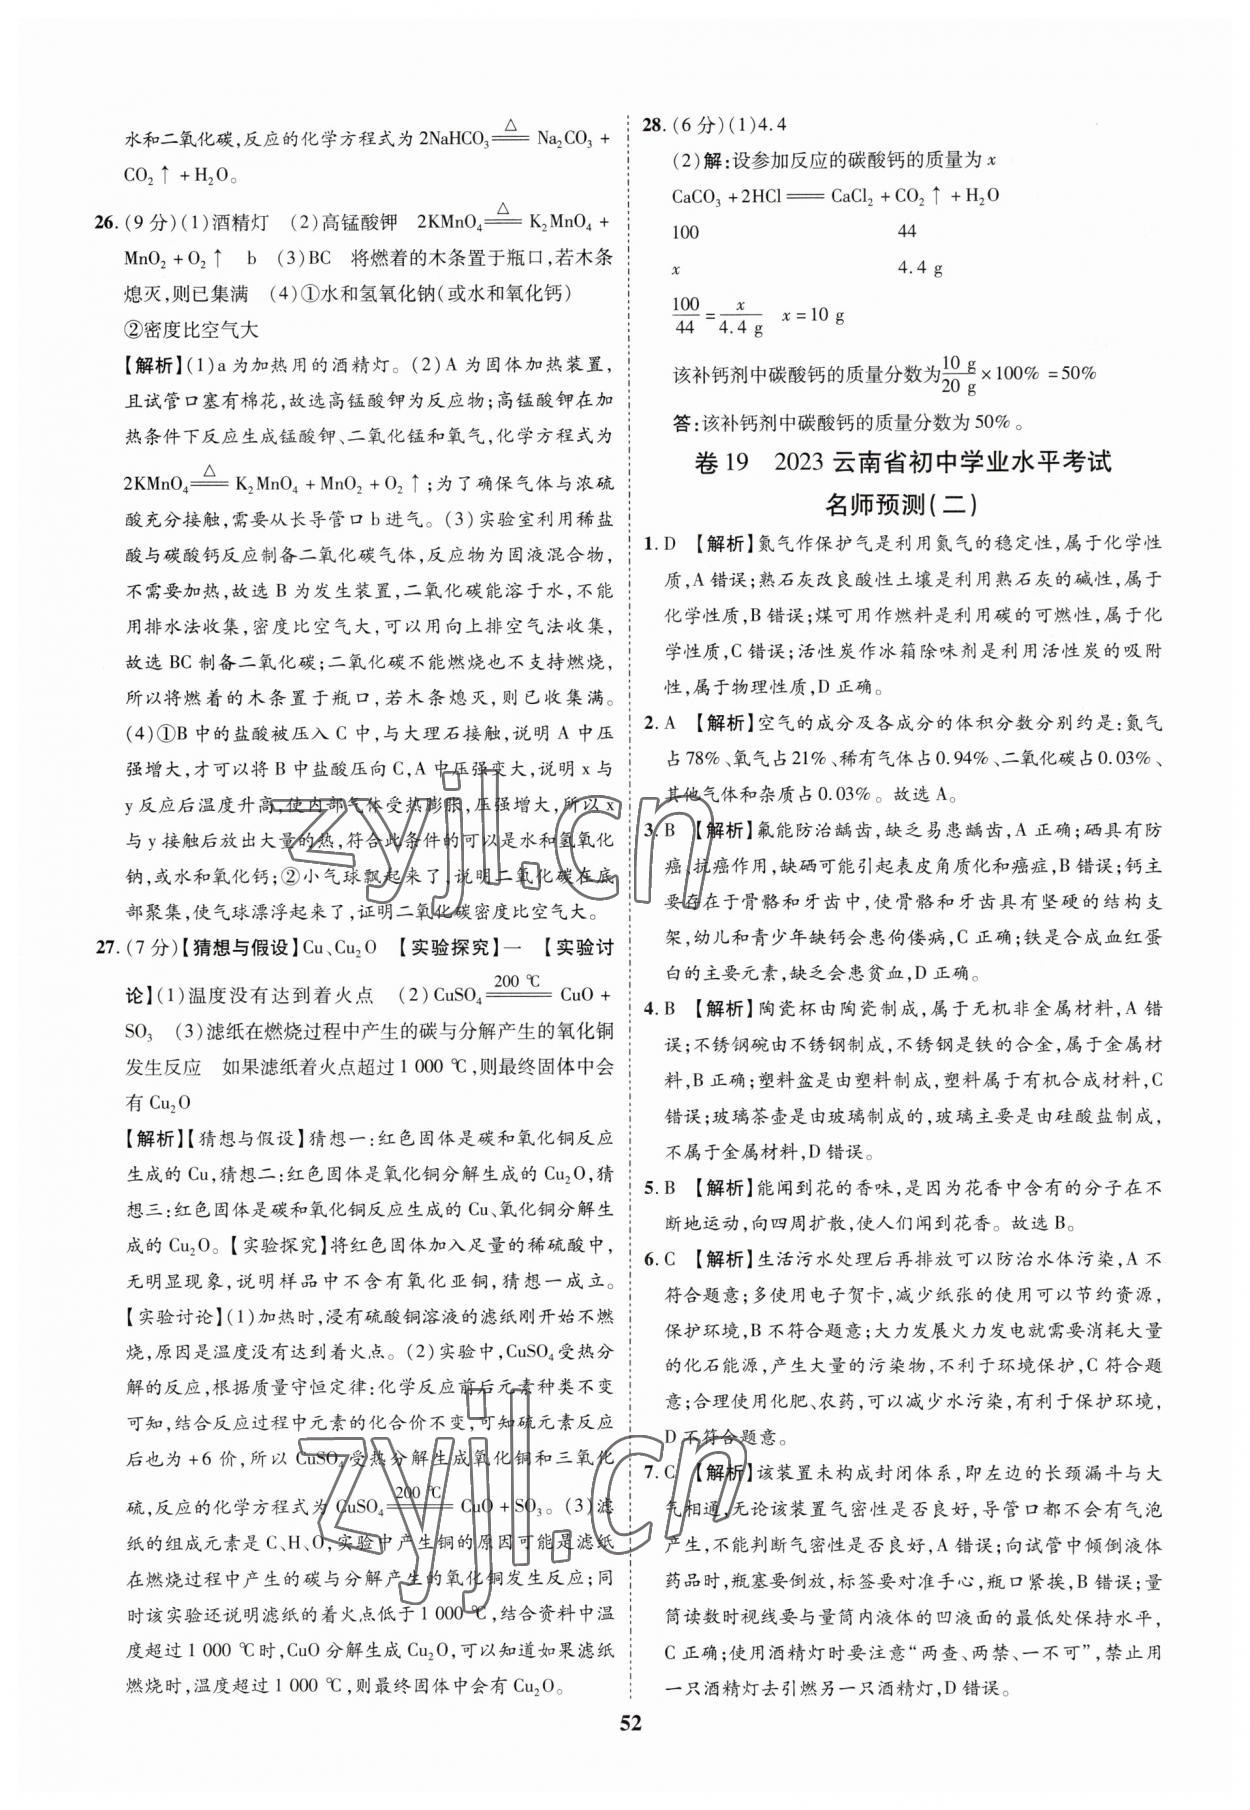 水和二氧化碳,反应的化学方程式为 2NaHCO₃ =△= Na₂CO₃ +
CO₂↑+H₂O。
26.(9 分)(1)酒精灯 (2)高锰酸钾 2KMnO₄ =△= K₂MnO₄ +
MnO₂+O₂↑ b (3)BC 将燃着的木条置于瓶口,若木条
熄灭,则已集满 (4)①水和氢氧化钠(或水和氧化钙)
②密度比空气大
【解析】(1)a 为加热用的酒精灯。(2)A 为固体加热装置,
且试管口塞有棉花,故选高锰酸钾为反应物;高锰酸钾在加
热条件下反应生成锰酸钾、二氧化锰和氧气,化学方程式为
2KMnO₄ =△= K₂MnO₄ + MnO₂ + O₂↑;为了确保气体与浓硫
酸充分接触,需要从长导管口 b 进气。(3)实验室利用稀盐
酸与碳酸钙反应制备二氧化碳气体,反应物为固液混合物,
不需要加热,故选 B 为发生装置,二氧化碳能溶于水,不能
用排水法收集,密度比空气大,可以用向上排空气法收集,
故选 BC 制备二氧化碳;二氧化碳不能燃烧也不支持燃烧,
所以将燃着的木条置于瓶口,若木条熄灭,则已收集满。
(4)①B 中的盐酸被压入 C 中,与大理石接触,说明 A 中压
强增大,才可以将 B 中盐酸压向 C,A 中压强变大,说明 x 与
y 反应后温度升高,使内部气体受热膨胀,压强增大,所以 x
与 y 接触后放出大量的热,符合此条件的可以是水和氢氧化
钠,或水和氧化钙;②小气球飘起来了,说明二氧化碳在底
部聚集,使气球漂浮起来了,证明二氧化碳密度比空气大。
27.(7 分)【猜想与假设】Cu、Cu₂O 【实验探究】一 【实验讨
论】(1)温度没有达到着火点 (2)CuSO₄ =200 ℃= CuO +
SO₃ (3)滤纸在燃烧过程中产生的碳与分解产生的氧化铜
发生反应 如果滤纸着火点超过 1 000 ℃,则最终固体中会
有 Cu₂O
【解析】【猜想与假设】猜想一:红色固体是碳和氧化铜反应
生成的 Cu,猜想二:红色固体是氧化铜分解生成的 Cu₂O,猜
想三:红色固体是碳和氧化铜反应生成的 Cu、氧化铜分解生
成的 Cu₂O。【实验探究】将红色固体加入足量的稀硫酸中,
无明显现象,说明样品中不含有氧化亚铜,猜想一成立。
【实验讨论】(1)加热时,浸有硫酸铜溶液的滤纸刚开始不燃
烧,原因是温度没有达到着火点。(2)实验中,CuSO₄ 受热分
解的反应,根据质量守恒定律:化学反应前后元素种类不变
可知,结合反应过程中元素的化合价不变,可知硫元素反应
后也为 +6 价,所以 CuSO₄ 受热分解生成氧化铜和三氧化
硫,反应的化学方程式为 CuSO₄ =200 ℃= CuO + SO₃。(3)滤
纸的组成元素是 C、H、O,实验中产生铜的原因可能是滤纸
在燃烧过程中产生的碳与分解产生的氧化铜发生反应;同
时该实验还说明滤纸的着火点低于 1 000 ℃,结合资料中温
度超过 1 000 ℃时,CuO 分解生成 Cu₂O,可以知道如果滤纸
燃烧时,温度超过 1 000 ℃,则最终固体中会有 Cu₂O。
28.(6 分)(1)4.4
(2)解:设参加反应的碳酸钙的质量为 x
CaCO₃ +2HCl══CaCl₂ + CO₂↑ + H₂O
100 44
x 4.4 g
100/44 = x/4.4 g x = 10 g
该补钙剂中碳酸钙的质量分数为 10 g/20 g × 100% = 50%
答:该补钙剂中碳酸钙的质量分数为 50%。
卷 19 2023 云南省初中学业水平考试
名师预测(二)
1. D 【解析】氮气作保护气是利用氮气的稳定性,属于化学性
质,A 错误;熟石灰改良酸性土壤是利用熟石灰的碱性,属于
化学性质,B 错误;煤可用作燃料是利用碳的可燃性,属于化
学性质,C 错误;活性炭作冰箱除味剂是利用活性炭的吸附
性,属于物理性质,D 正确。
2. A 【解析】空气的成分及各成分的体积分数分别约是:氮气
占 78%、氧气占 21%、稀有气体占 0.94%、二氧化碳占 0.03%、
其他气体和杂质占 0.03%。故选 A。
3. B 【解析】氟能防治龋齿,缺乏易患龋齿,A 正确;硒具有防
癌、抗癌作用,缺硒可能引起表皮角质化和癌症,B 错误;钙主
要存在于骨骼和牙齿中,使骨骼和牙齿具有坚硬的结构支
架,幼儿和青少年缺钙会患佝偻病,C 正确;铁是合成血红蛋
白的主要元素,缺乏会患贫血,D 正确。
4. B 【解析】陶瓷杯由陶瓷制成,属于无机非金属材料,A 错
误;不锈钢碗由不锈钢制成,不锈钢是铁的合金,属于金属材
料,B 正确;塑料盆是由塑料制成,塑料属于有机合成材料,C
错误;玻璃茶壶是由玻璃制成的,玻璃主要是由硅酸盐制成,
不属于金属材料,D 错误。
5. B 【解析】能闻到花的香味,是因为花香中含有的分子在不
断地运动,向四周扩散,使人们闻到花香。故选 B。
6. C 【解析】生活污水处理后再排放可以防治水体污染,A 不
符合题意;多使用电子贺卡,减少纸张的使用可以节约资源,
保护环境,B 不符合题意;大力发展火力发电就需要消耗大量
的化石能源,产生大量的污染物,不利于环境保护,C 符合题
意;合理使用化肥、农药,可以减少水污染,有利于保护环境,
D 不符合题意。
7. C 【解析】该装置未构成封闭体系,即左边的长颈漏斗与大
气相通,无论该装置气密性是否良好,导管口都不会有气泡
产生,不能判断气密性是否良好,A 错误;向试管中倾倒液体
药品时,瓶塞要倒放,标签要对准手心,瓶口紧挨,B 错误;量
筒读数时视线要与量筒内液体的凹液面的最低处保持水平,
C 正确;使用酒精灯时要注意“两查、两禁、一不可”,禁止用
一只酒精灯去引燃另一只酒精灯,D 错误。
52
zyjl.cn
zyjl.cn